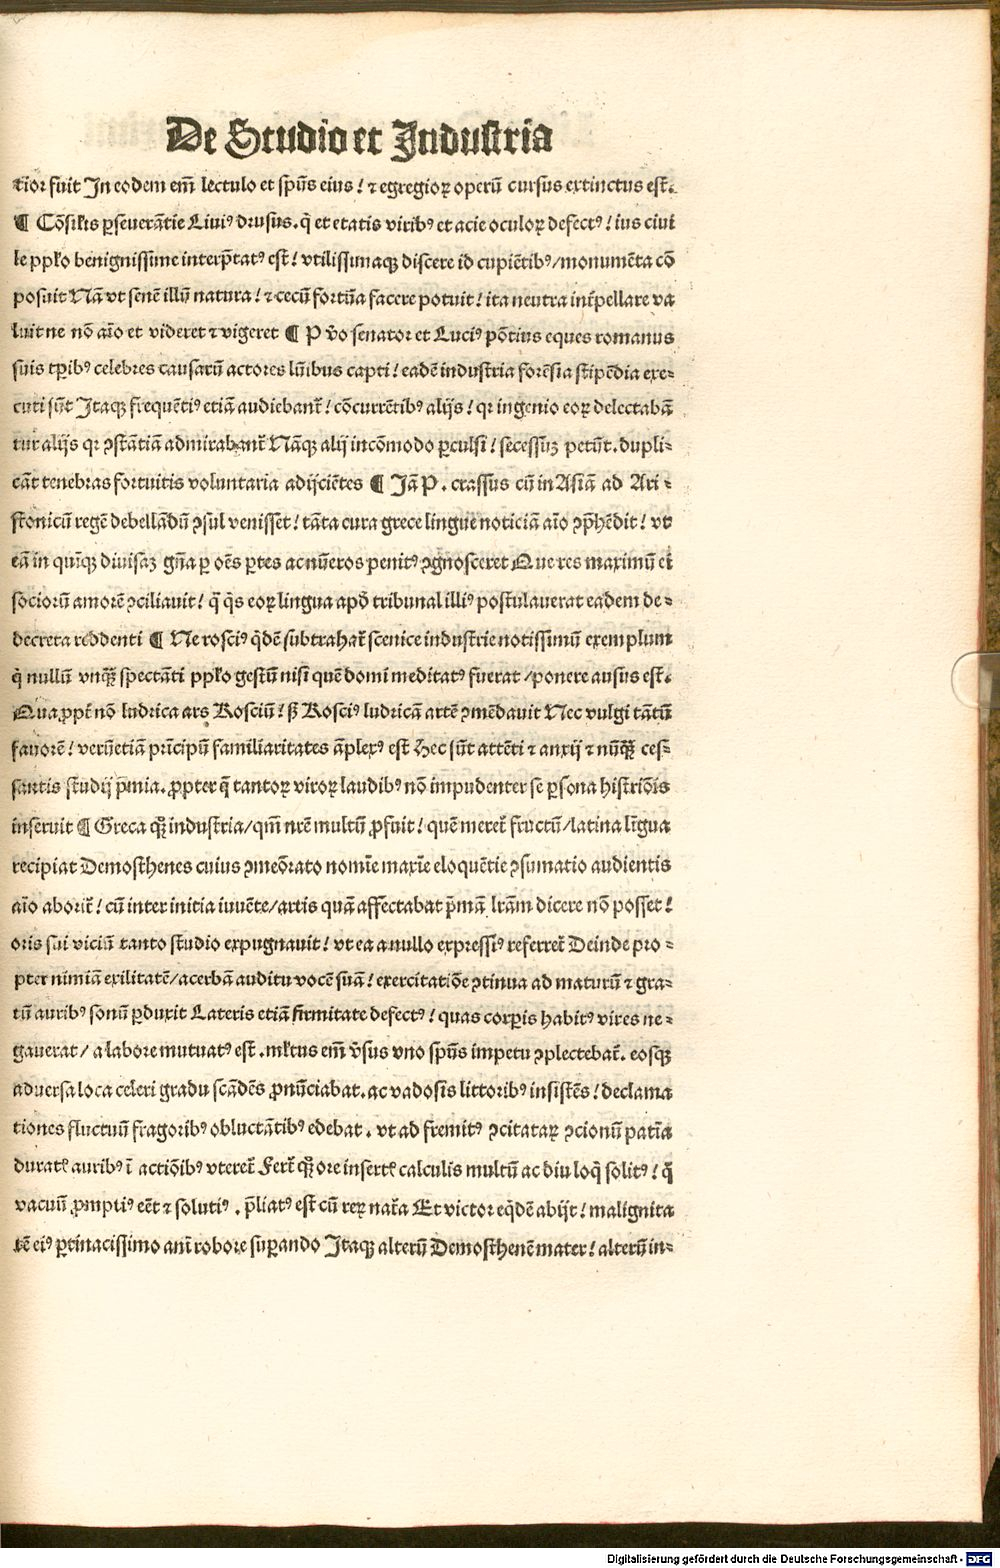 De Studio et Industria
tior fuit In eodem em̄ lectulo et spūs eius! ⁊ egregioꝝ operū cursus extinctus est.
¶ Cōsiłis ꝑseuerātie Liuiꝰ drusus. q̇ et etatis viribꝰ et acie oculoꝝ defectꝰ! ius ciui
le ppło benignissime interp̄tatꝰ est! vtilissimaqꝫ discere id cupiētibꝰ/monumēta cō
posuit Nā vt senē illū natura! ⁊ cecū fortūa facere potuit! ita neutra int̄pellare va
luit ne nō aīo et videret ⁊ vigeret ¶ P v̊o senator et Luciꝰ pōtius eques romanus
suis tꝑibꝰ celebres causarū actores lūibus capti! eadē industria forēsia stipēdia exe⸗
cuti sūt Itaqꝫ frequētiꝰ etiā audiebant̄! cōcurrētibꝰ alijs! qꝛ ingenio eoꝝ delectabā
tur alijs qꝛ ꝯstātiā admirabant̄ Nāqꝫ alij incōmodo ꝑculsi! secessūꝫ petūt. dupli⸗
cāt tenebras fortuitis voluntaria adijciētes ¶ Jā P. crassus cū in Asiā ad Ari⸗
stonicū regē debellādū ꝯsul venisset! tāta cura grece lingue noticiā aīo ꝯp̄hēdit! vt
eā in quīqꝫ diuisaꝫ gn̄a ꝑ oēs ꝑtes ac nūeros penitꝰ ꝯgnosceret Que res maximū ei̇
sociorū amorē ꝯciliauit! q̄ q̇s eoꝝ lingua apd̄ tribunal illiꝰ postulauerat eadem de⸗
decreta reddenti ¶ Ne rosciꝰ q̇dē subtrahat̄ scenice industrie notissimū exemplum
q̇ nullū vnqꝫ̄ spectāti ppło gestū nisi quē domi meditatꝰ fuerat/ponere ausus est.
Qua ꝓpt̄ nō ludrica ars Rosciū! ſꝫ Rosciꝰ ludricā artē ꝯmēdauit Nec vulgi tātū
fauorē! verūetiā prīcipū familiaritates āplexꝰ est Hec sūt attēti ⁊ anxij ⁊ nūqꝫ̄ ces⸗
santis studij p̄mia. ꝓpter q̄ tantoꝝ viroꝝ laudibꝰ nō impudenter se ꝑsona histriōis
inseruit ¶ Greca qꝫ̄ industria/qm̄ nr̄e multū ꝓfuit! quē meret̄ fructū/latina līgua
recipiat Demosthenes cuius ꝯmeōrato nomīe maxīe eloquētie ꝯsumatio audientis
aīo aborit̄! cū inter initia iuuēte/artis quā affectabat p̄mā lr̄am dicere nō posset!
oris sui viciū tanto studio expugnauit! vt ea a nullo expressiꝰ referret̄ Deinde pro⸗
pter nimiā exilitatē/acerbā auditu vocē suā! exercitatiōe ꝯtinua ad maturū ⁊ gra⸗
tū auribꝰ sonū ꝑduxit Lateris etiā firmitate defectꝰ! quas corꝑis habitꝰ vires ne⸗
gauerat/ a labore mutuatꝰ est. młtus em̄ v̊sus vno spūs impetu ꝯplectebat̄. eosqꝫ
aduersa loca celeri gradu scādēs ꝓnūciabat. ac vadosis littoribꝰ insistēs! declama
tiones fluctuū fragoribꝰ obluctātibꝰ edebat. vt ad fremitꝰ ꝯcitataꝝ ꝯcionū patīa
duratꝭ auribꝰ ī actiōibꝰ vteret̄ Fert̄ qꝫ̄ ore insertꝭ calculis multū ac diu loq̇ solitꝰ! q̄
vacuū ꝓmptiꝰ eēt ⁊ solutiꝰ. p̄liatꝰ est cū reꝝ nat̄a Et victor eq̇dē abijt! malignita
tē eiꝰ ꝑtinacissimo anī robore suꝑando Itaqꝫ alterū Demosthenē mater! alterū in⸗
Digitalisierung gefördert durch die Deutsche Forschungsgemeinschaft - DFG